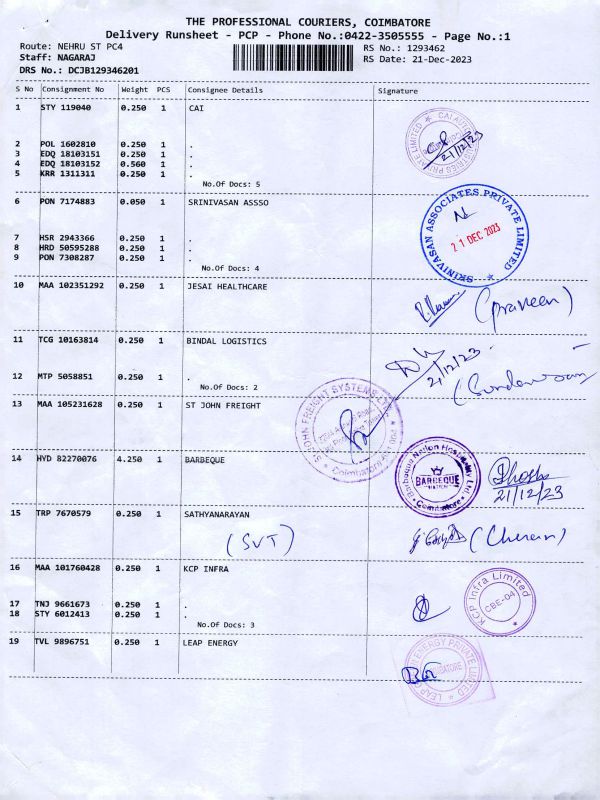 THE PROFESSIONAL COURIERS, COIMBATORE
Delivery Runsheet - PCP - Phone No.:0422-3505555 - Page No.:1
Route: NEHRU ST PC4
RS No.: 1293462
Staff: NAGARAJ
RS Date: 21-Dec-2023
DRS No.: DCJB129346201
S No Consignment No Weight PCS Consignee Details Signature
1 STY 119040 0.250 1 CAI
21/12/23
2 POL 1602810 0.250 1 .
3 EDQ 18103151 0.250 1 .
4 EDQ 18103152 0.560 1 .
5 KRR 1311311 0.250 1 .
No.Of Docs: 5
6 PON 7174883 0.050 1 SRINIVASAN ASSSO
SRINIVASAN ASSOCIATES PRIVATE LIMITED
21 DEC 2023
7 HSR 2943366 0.250 1 .
8 HRD 50595288 0.250 1 .
9 PON 7308287 0.250 1 .
No.Of Docs: 4
10 MAA 102351292 0.250 1 JESAI HEALTHCARE
(praveen)
11 TCG 10163814 0.250 1 BINDAL LOGISTICS
21/12/23
12 MTP 5058851 0.250 1 .
No.Of Docs: 2
13 MAA 105231628 0.250 1 ST JOHN FREIGHT
ST.JOHN FREIGHT SYSTEMS LTD
Coimbatore
14 HYD 82270076 4.250 1 BARBEQUE
Barbeque Nation Hospitality Ltd.
BARBEQUE
NATION
Coimbatore
21/12/23
15 TRP 7670579 0.250 1 SATHYANARAYAN
(SVT)
16 MAA 101760428 0.250 1 KCP INFRA
KCP Infra Limited
CBE-04
17 TNJ 9661673 0.250 1 .
18 STY 6012413 0.250 1 .
No.Of Docs: 3
19 TVL 9896751 0.250 1 LEAP ENERGY